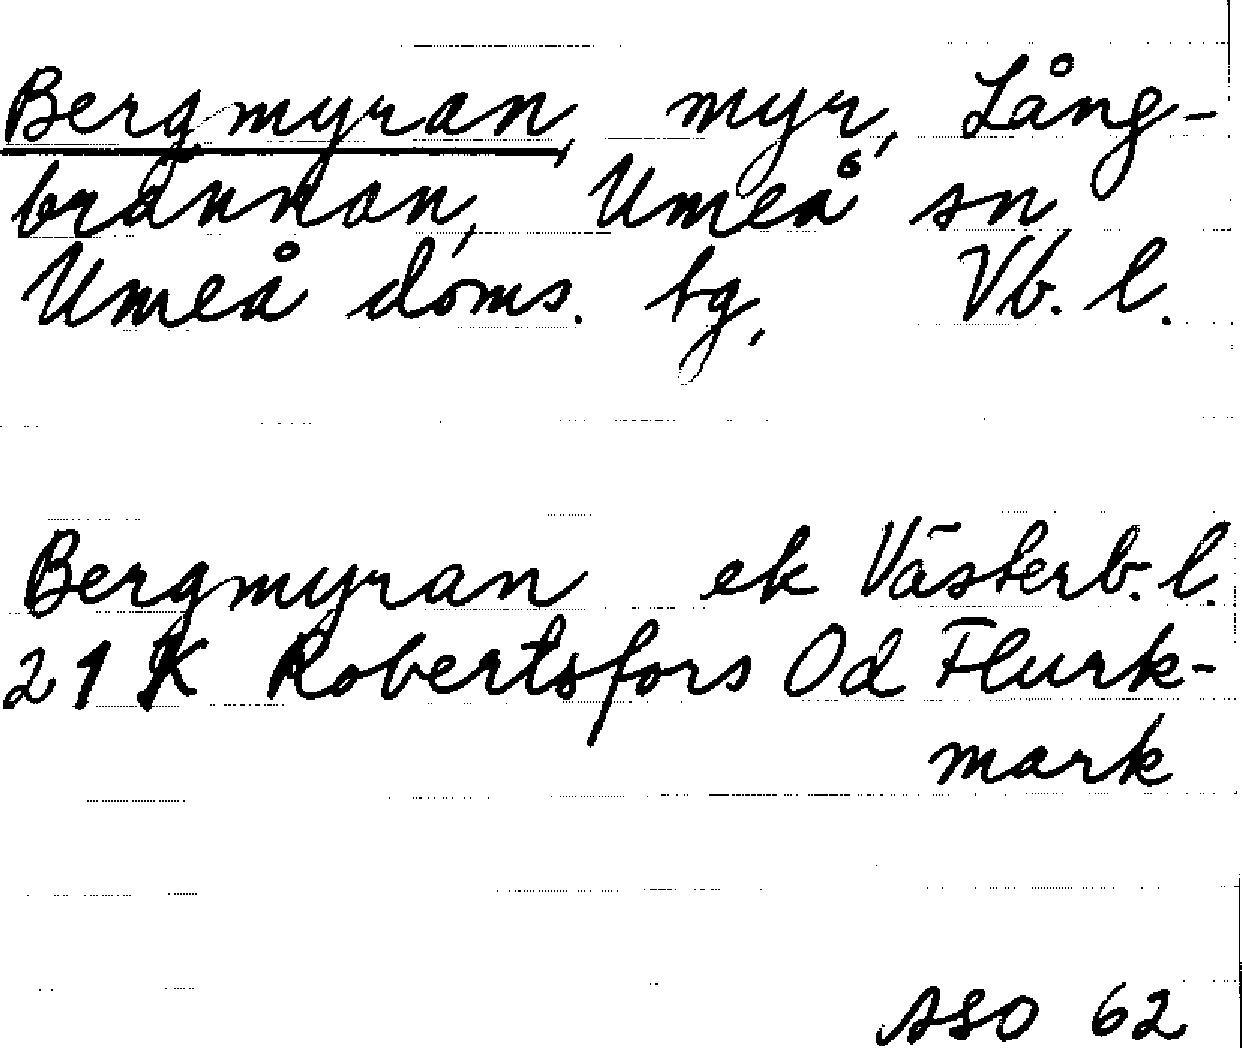 Bergmyran, myr, Lång-
brännan, Umeå sn
Umeå doms. tg, Vb. l.
Bergmyran ek Västerb. l.
21 K Robertsfors Od Flurk-
mark
ASO 62